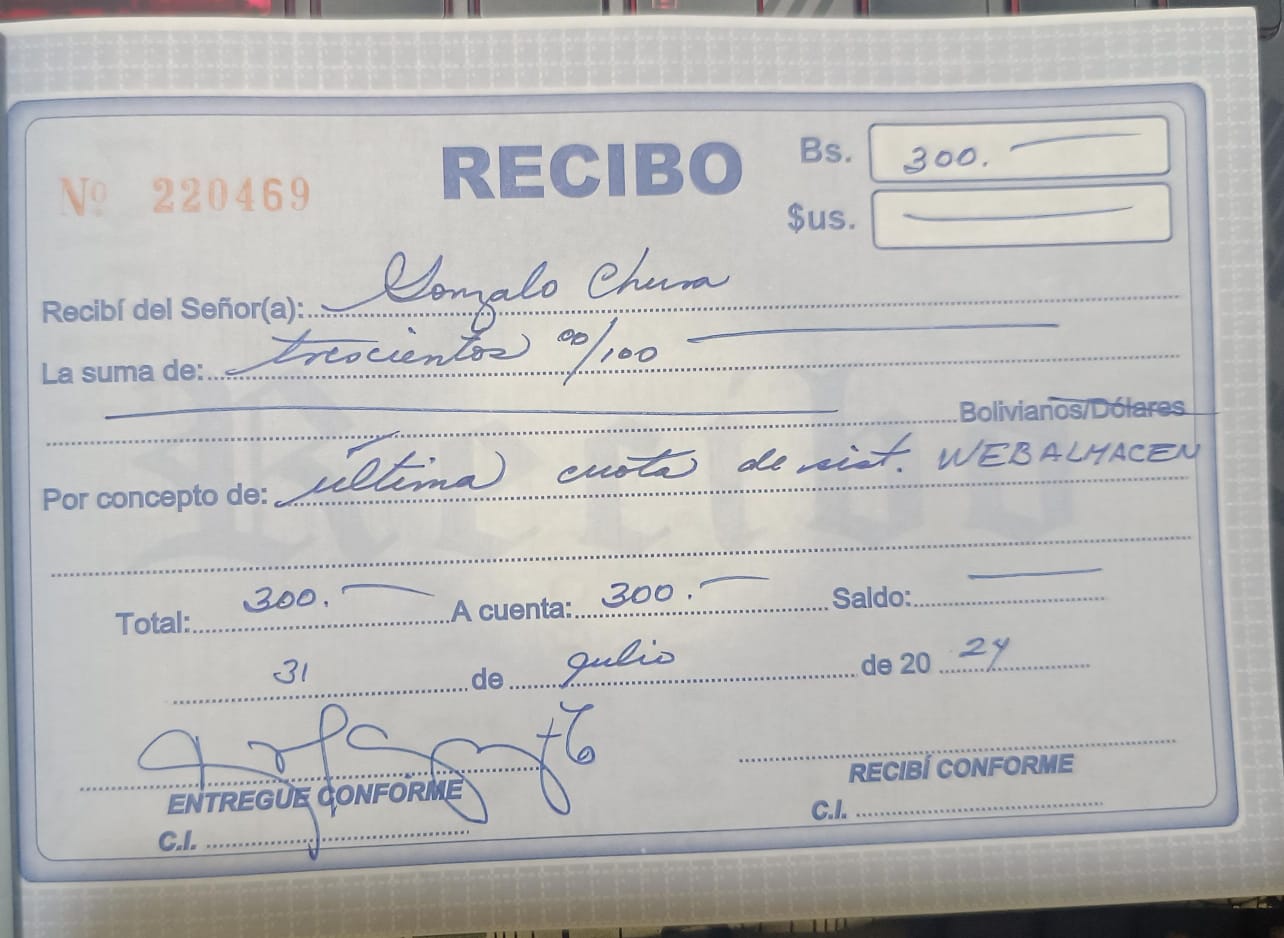 RECIBO
Bs. 300.
Nº 220469
$us.
Recibí del Señor(a): Gonzalo Chura
La suma de: trescientos 00/100
Bolivianos/Dólares
Por concepto de: última cuota de sist. WEBALMACEN
Total: 300. A cuenta: 300. Saldo:
31 de julio de 20 24
ENTREGUE CONFORME
RECIBÍ CONFORME
C.I.
C.I.